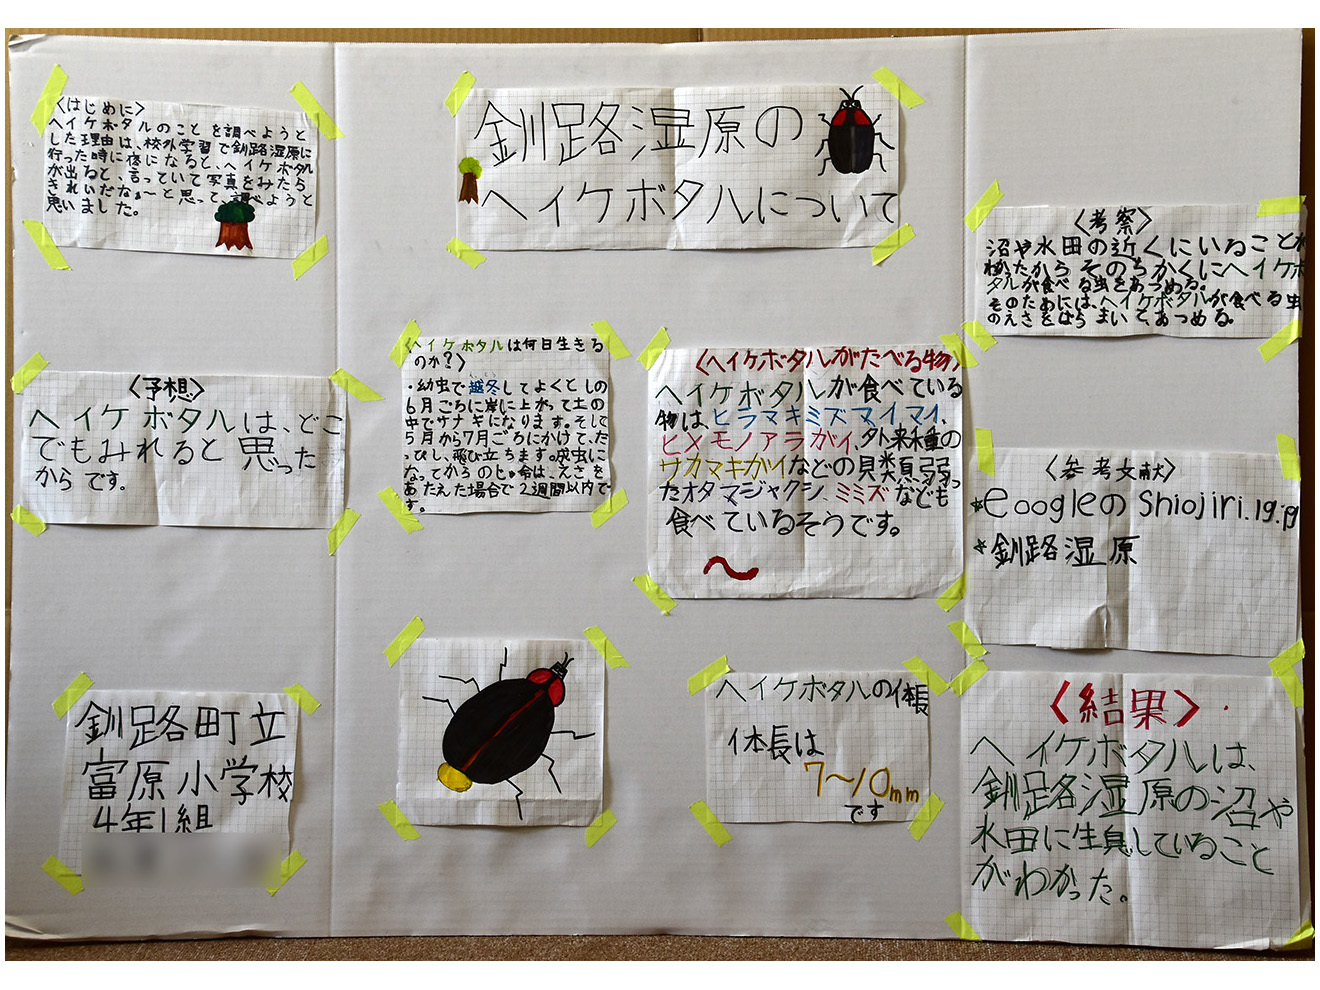 釧路湿原の
ヘイケボタルについて
〈はじめに〉
ヘイケボタルのことを調べようと
した理由は、校外学習で釧路湿原に
行った時に夜になると、ヘイケボタル
が出ると、言っていて写真をみたら
きれいだなぁ〜と思って、調べようと
思いました。
〈予想〉
ヘイケボタルは、どこ
でもみれると思った
からです。
釧路町立
富原小学校
4年1組
〈ヘイケボタルは何日生きる
のか?〉
・幼虫で越冬してよくとしの
6月ごろに岸に上がって土の
中でサナギになります。そして
5月から7月ごろにかけて、だ
っぴし、飛び立ちます。成虫に
なってからのじゅ命は、えさを
あたえた場合で2週間以内で
す。
〈ヘイケボタルがたべる物〉
ヘイケボタルが食べている
物は、ヒラマキミズマイマイ、
ヒメモノアラガイ、外来種の
サカマキガイなどの貝類弱っ
たオタマジャクシ、ミミズなども
食べているそうです。
ヘイケボタルの体長
体長は
7〜10mm
です
〈考察〉
沼や水田の近くにいることが
わかったからそのちかくにヘイケボ
タルが食べる虫をあつめる。
そのためには、ヘイケボタルが食べる虫
のえさをばらまいてあつめる。
〈参考文献〉
*eoogleのShiojiri.ig.jp
*釧路湿原
〈結果〉
ヘイケボタルは、
釧路湿原の沼や
水田に生息していること
がわかった。